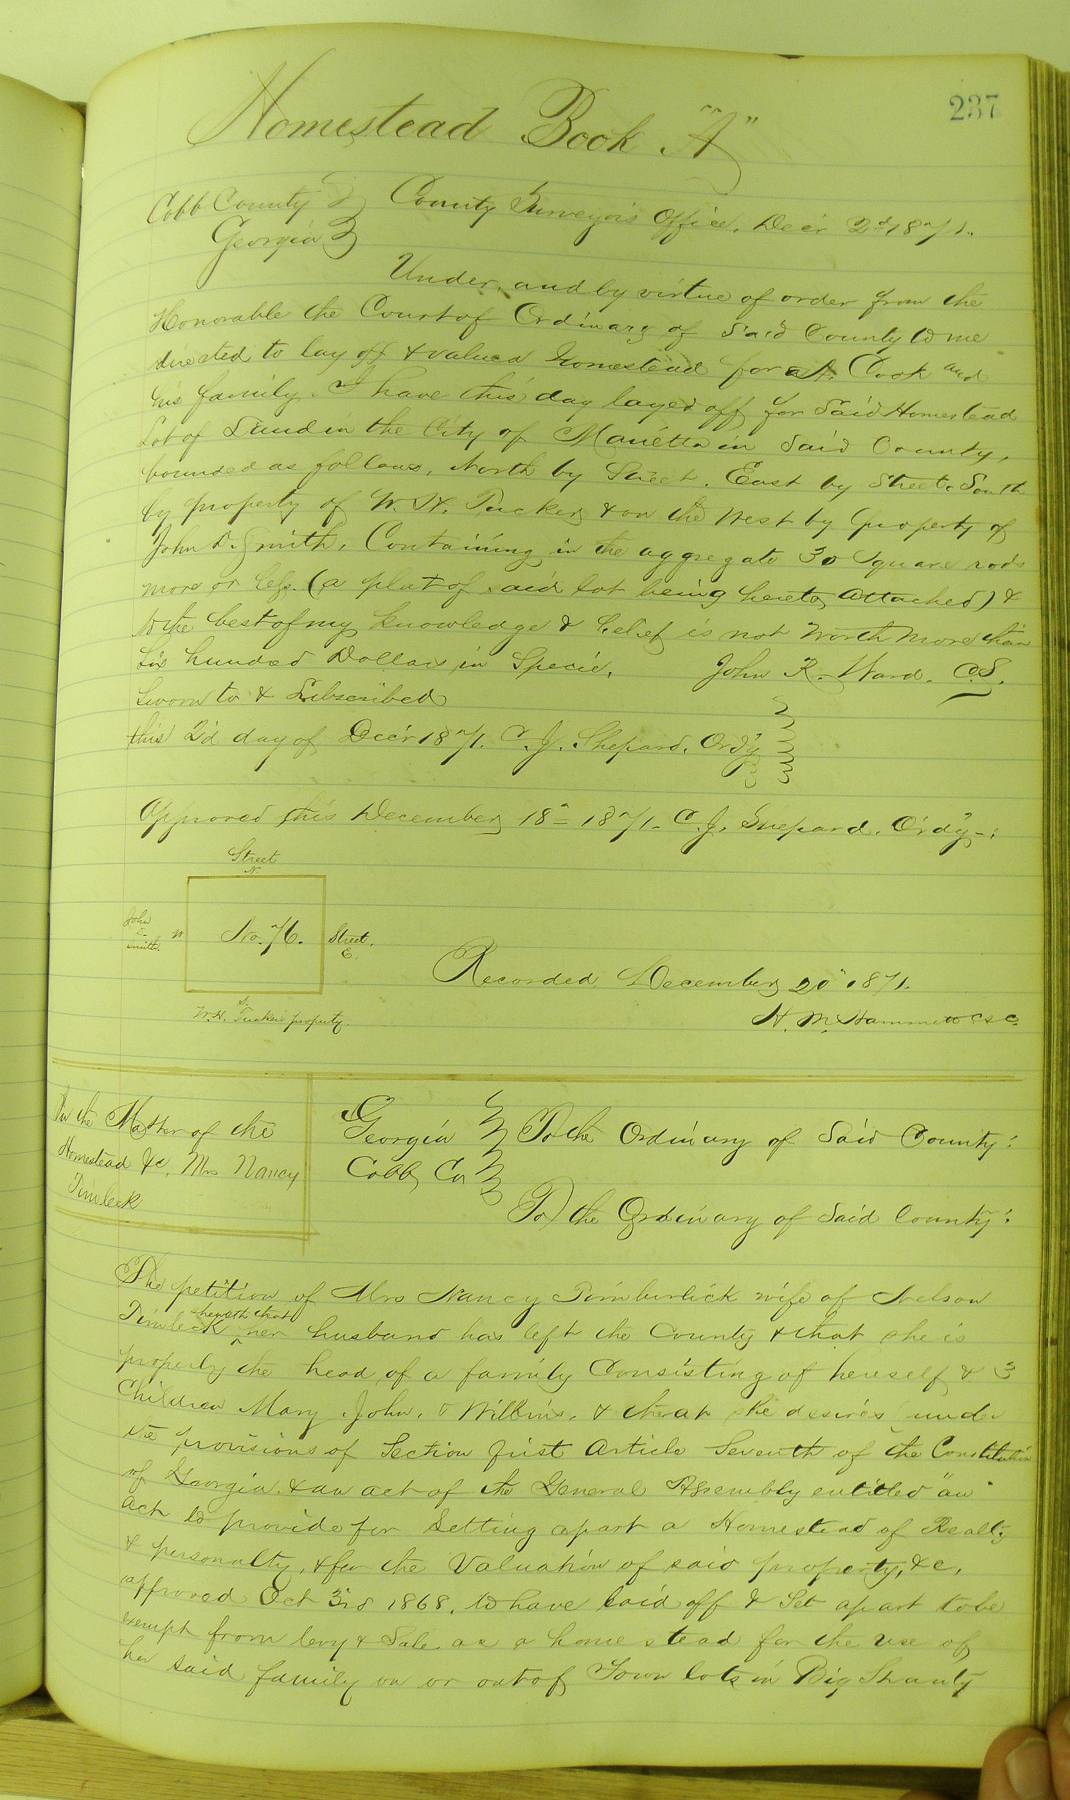 237
Homestead Book "A"
Cobb County } County Surveyor's Office, Decr 2d 1871.
Georgia }
Under and by virtue of order from the
Honorable the Court of Ordinary of Said County to me
directed to lay off & value a Homestead for Cook and
his family. I have this day layed off for Said Homestead
Lot of Land in the City of Marietta in Said County,
bounded as follows, North by Street, East by Street, South
by property of W. H. Tucker & on the West by property of
John D. Smith, Containing in the aggregate 30 Square rods
more or less. (a plat of said lot being hereto attached) &
to the best of my knowledge & belief is not worth more than
Six hundred Dollars in Specie. John R. Ward. C.S.
Sworn to & Subscribed
this 2d day of Decr 1871. C. J. Shepard, Ordy
Approved this December 18th 1871. C. J. Shepard, Ordy
Street
N
John
D.
Smith.
W
No. 76.
Street.
E.
S.
W. H. Tucker property.
Recorded December 20" 1871.
H. M. Hammett CSC.
In the Matter of the
Homestead &c. Mrs Nancy
Timleck
Georgia } To the Ordinary of Said County:
Cobb Co }
To the Ordinary of Said County:
The petition of Mrs Nancy Timberlick wife of Nelson
Timleck sheweth that her husband has left the County & that she is
properly the head of a family Consisting of herself & 3
Children Mary, John, & & that she desires under
the provisions of Section first Article Seventh of the Constitution
of Georgia & an act of the General Assembly entitled "an
act to provide for Setting apart a Homestead of Realty
& personalty, & for the Valuation of said property, &c,
approved Oct 3rd 1868, to have laid off & Set apart to be
exempt from levy & Sale as a home stead for the use of
her said family on or out of Town lots in Big Shanty